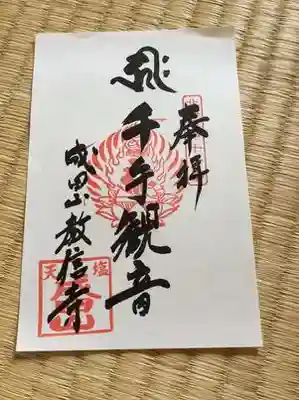 奉拝
千手観音
成田山教信寺
天塩